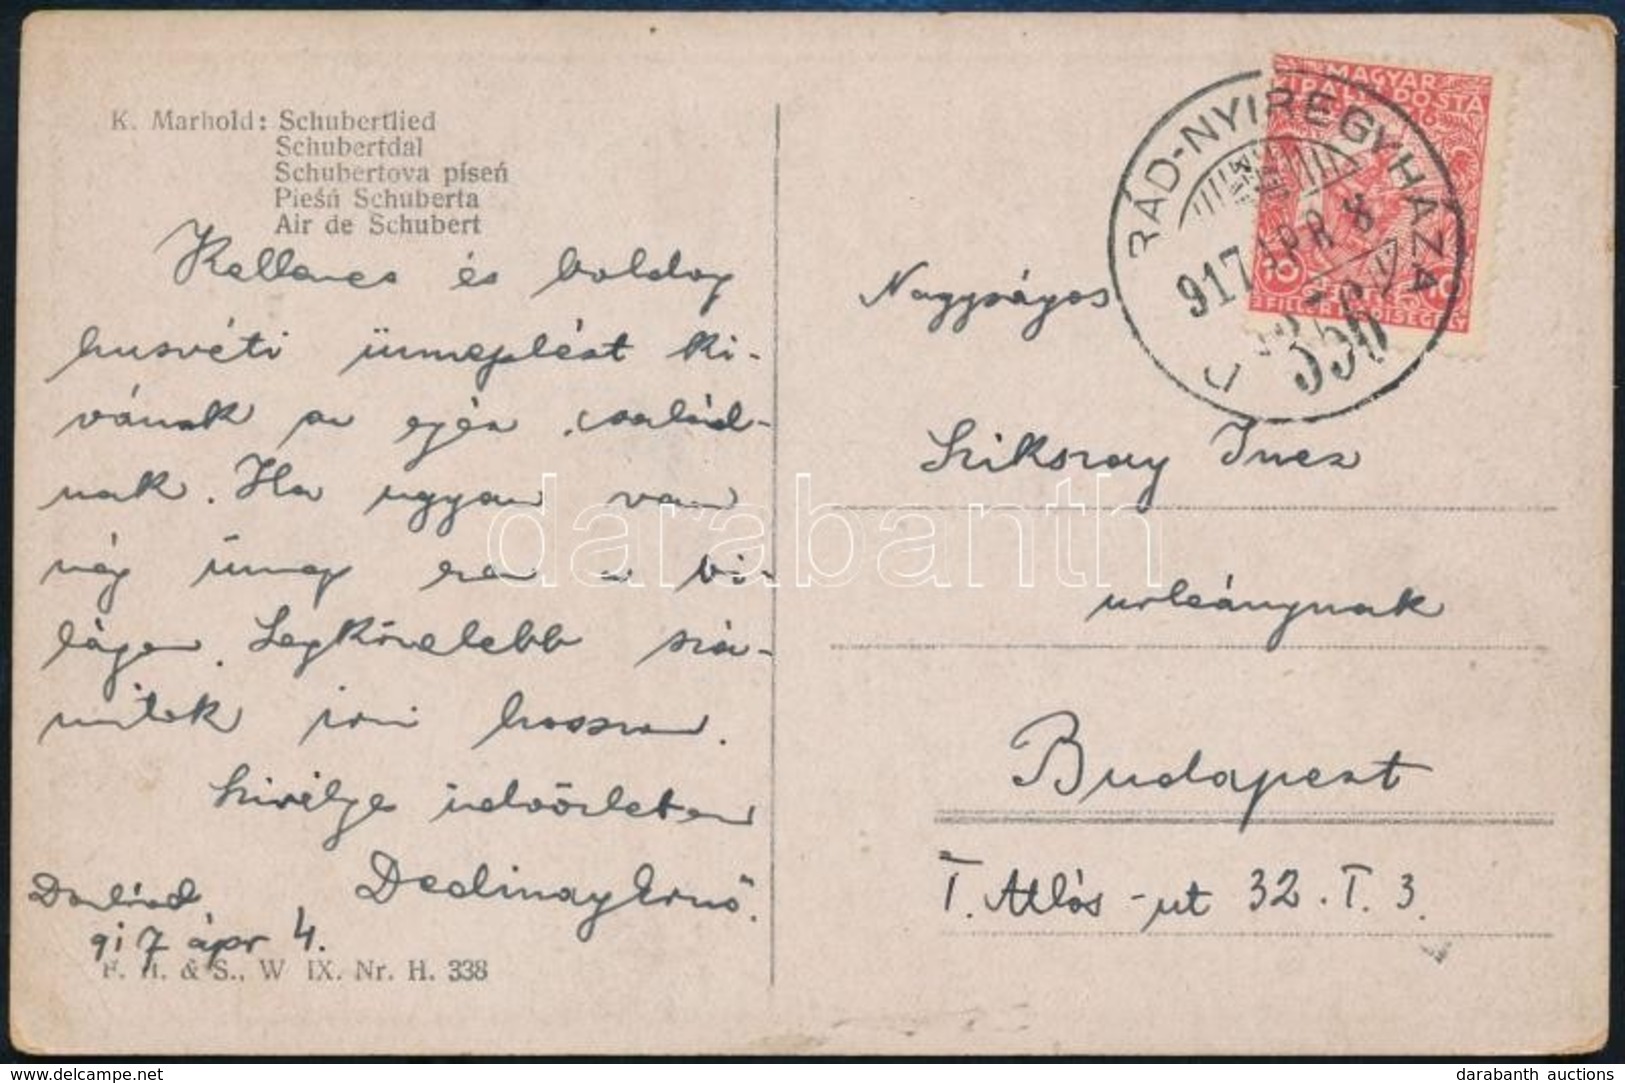 K. Marhold: Schubertlied
Schubertdal
Schubertova píseń
Pieśń Schuberta
Air de Schubert
Kellemes és boldog
husvéti ünneplést ki-
vánok az egész család-
nak. Ha ugyan van
még ünnep ezen a vi-
lágon. Legközelebb szá-
mitok irni hosszan.
Szivélyes üdvözlettel
Dedinay Ernő.
917 ápr 4.
F. H. & S., W IX. Nr. H. 338
MAGYAR
KIR. ÁLLYI POSTA
RÁD-NYIREGYHÁZA
917 APR 8
356
Nagyságos
Szikszay Inez
urleánynak
Budapest
I. Attila-ut 32. I. 3.
darabanth
www.delcampe.net
darabanth auctions